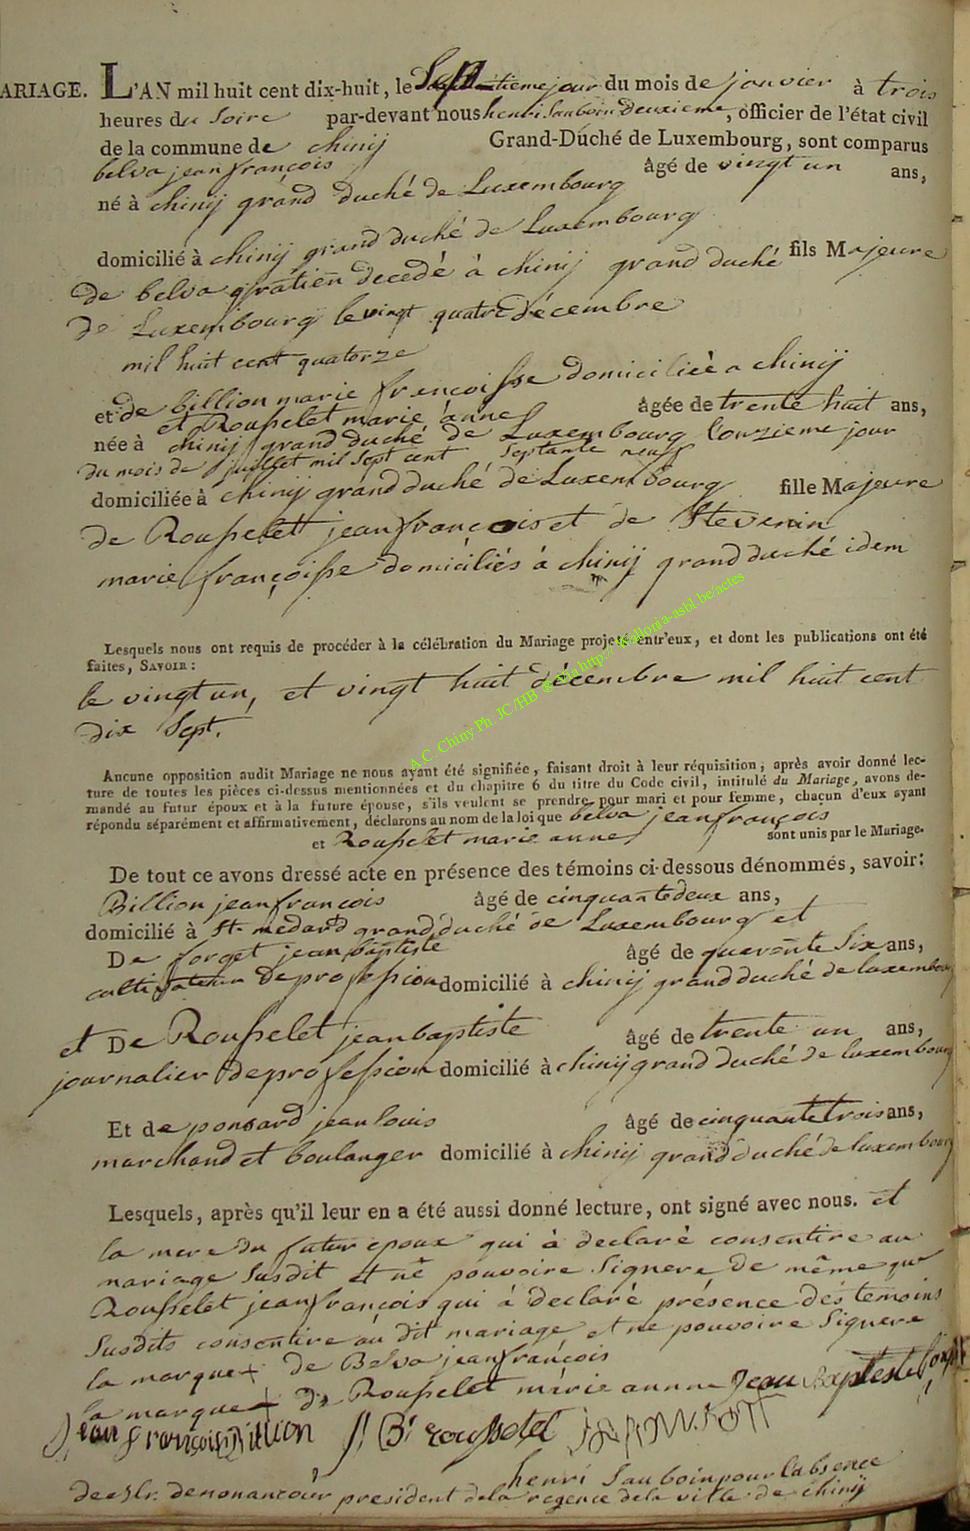 ARIAGE. L'AN mil huit cent dix-huit, le Septieme jour du mois de janvier à trois
heures du Soire par-devant nous henri Sauboin deuxieme, officier de l'état civil
de la commune de chinij Grand-Duché de Luxembourg, sont comparus
belva jean françois âgé de vingt un ans,
né à chinij grand duché de Luxembourg
domicilié à chinij grand duché de Luxembourg fils Majeure
de belva gratien decedé à chinij grand duché
de Luxembourg le vingt quatre décembre
mil huit cent quatorze
et de billion marie françoisse domiciliée a chinij
et Rousselet marie anne âgée de trente huit ans,
née à chinij grand duché de Luxembourg l'onzieme jour
du mois de juillet mil sept cent septante neuf
domiciliée à chinij grand duché de Luxembourg fille Majeure
de Rousselet jean françois et de Stevenin
marie françoisse domiciliés à chinij grand duché idem
Lesquels nous ont requis de procéder à la célébration du Mariage projeté entr'eux, et dont les publications ont été
faites, SAVOIR :
le vingt un, et vingt huit décembre mil huit cent
dix Sept.
A.C. Chiny Ph. JC/HB http://Walloria-asbl.be/actes
Aucune opposition audit Mariage ne nous ayant été signifiée, faisant droit à leur réquisition ; après avoir donné lec-
ture de toutes les pièces ci-dessus mentionnées et du chapitre 6 du titre du Code civil, intitulé du Mariage, avons de-
mandé au futur époux et à la future épouse, s'ils veulent se prendre pour mari et pour femme, chacun d'eux ayant
répondu séparément et affirmativement, déclarons au nom de la loi que belva jean françois
et Rousselet marie anne sont unis par le Mariage.
De tout ce avons dressé acte en présence des témoins ci-dessous dénommés, savoir :
Billion jean francois âgé de cinquante deux ans,
domicilié à St. medard grand duché de Luxembourg et
De forget jean baptiste âgé de quarente Six ans,
cultivateur de profession domicilié à chinij grand duché de luxembourg
et De Rousselet jean baptiste âgé de trente un ans,
journalier de profession domicilié à chinij grand duché de luxembourg
Et de ponsard jean louis âgé de cinquante trois ans,
marchand et boulanger domicilié à chinij grand duché de luxembourg
Lesquels, après qu'il leur en a été aussi donné lecture, ont signé avec nous. et
la mere du futur epoux qui à declaré consentire au
mariage Susdit et ne pouvoire Signere de même que
Rousselet jean françois qui à declaré présence dés temoins
Susdits consentire au dit mariage et ne pouvoire Signere
la marque + de Belva jean françois
la marque + de Rousselet marie anne Jean baptiste forget
Jean françois Billion J: B: rousselet
henri Sauboin pour l'absence
de Mr. denonancour president de la regence de la ville de chinij